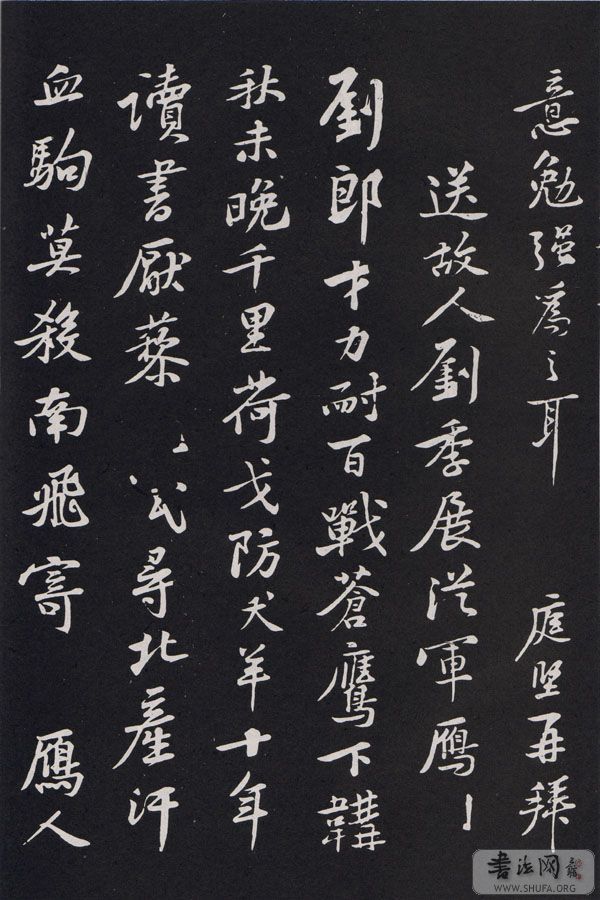 意勉强爲之耳 庭堅再拜
送故人劉季展從軍鴈
劉郎才力耐百戰蒼鷹下韝
秋未晚千里荷戈防犬羊十年
讀書厭藜 尋北產汗
血駒莫殺南飛寄 鴈人
書法网
WWW.SHUFA.ORG